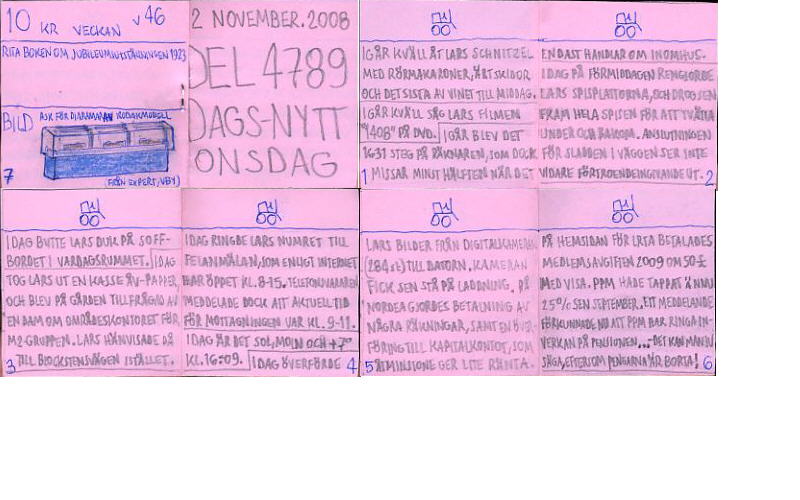 10 KR VECKAN V46
RITA BOKEN OM JUBILEUMSUTSTÄLLNINGEN 1923
BILD ASK FÖR DIARAMAN KODAKMODELL
7 FRÅN EXPERT, VBY)
2 NOVEMBER. 2008
DEL 4789
DAGS-NYTT
ONSDAG
IGÅR KVÄLL ÅT LARS SCHNITZEL
MED RÖRMAKARONER, ÄRTSKIDOR
OCH DET SISTA AV VINET TILL MIDDAG.
IGÅR KVÄLL SÅG LARS FILMEN
"1408" PÅ DVD. IGÅR BLEV DET
1631 STEG PÅ RÄKNAREN, SOM DOCK
1 MISSAR MINST HÄLFTEN NÄR DET
ENDAST HANDLAR OM INOMHUS.
IDAG PÅ FÖRMIDDAGEN RENGJORDE
LARS SPISPLATTORNA, OCH DROG SEN
FRAM HELA SPISEN FÖR ATT TVÄTTA
UNDER OCH BAKOM. ANSLUTNINGEN
FÖR SLADDEN I VÄGGEN SER INTE
VIDARE FÖRTROENDEINGIVANDE UT. 2
IDAG BYTTE LARS DUK PÅ SOFF-
BORDET I VARDAGSRUMMET. IDAG
TOG LARS UT EN KASSE ÅV-PAPPER,
OCH BLEV PÅ GÅRDEN TILLFRÅGAD AV
EN DAM OM OMRÅDESKONTORET FÖR
M2-GRUPPEN. LARS HÄNVISADE DÅ
3 TILL BLOCKSTENSVÄGEN ISTÄLLET.
IDAG RINGDE LARS NUMRET TILL
FELANMÄLAN, SOM ENLIGT INTERNET
HAR ÖPPET KL. 8-15. TELEFONSVARAREN
MEDDELADE DOCK ATT AKTUELL TID
FÖR MOTTAGNINGEN VAR KL. 9-11.
IDAG ÄR DET SOL, MOLN OCH +7°
KL. 16:09. IDAG ÖVERFÖRDE 4
LARS BILDER FRÅN DIGITALKAMERAN
(284 st) TILL DATORN. KAMERAN
FICK SEN STÅ PÅ LADDNING. PÅ
NORDEA GJORDES BETALNING AV
NÅGRA RÄKNINGAR, SAMT EN ÖVER-
FÖRING TILL KAPITALKONTOT, SOM
5 ÅTMINSTONE GER LITE RÄNTA.
PÅ HEMSIDAN FÖR LRTA BETALADES
MEDLEMSAVGIFTEN 2009 OM 50 £
MED VISA. PPM HADE TAPPAT ÄNNU
25% SEN SEPTEMBER. ETT MEDDELANDE
FÖRKUNNADE NU ATT PPM HAR RINGA IN-
VERKAN PÅ PENSIONEN... DET KAN MAN JU
SÄGA, EFTERSOM PENGARNA ÄR BORTA! 6